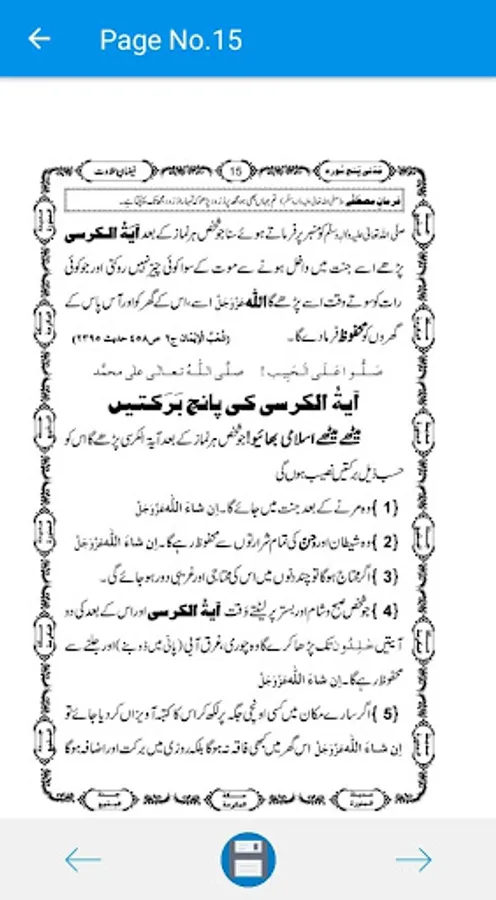 Page No.15
مَدَنی پنج سُورہ
15
فیضانِ تلاوت
فرمانِ مصطفٰے (صلی اللہ تعالٰی علیہ والہ وسلم) تم جہاں بھی ہو مجھ پر دُرود پڑھو کہ تمہارا دُرود مجھ تک پہنچتا ہے۔
صلی اللہ تعالٰی علیہ والہٖ وسلم کو منبر پر فرماتے ہوئے سنا جو شخص ہر نماز کے بعد آیۃُ الکرسی
پڑھے اسے جنت میں داخل ہونے سے موت کے سوا کوئی چیز نہیں روکتی اور جو کوئی
رات کو سوتے وقت اسے پڑھے گا اللہ عَزَّوَجَلَّ اسے، اس کے گھر کو اور آس پاس کے
گھروں کو محفوظ فرما دے گا۔ (شُعَبُ الْاِیْمَان ج۲ ص۴۵۸ حدیث ۲۳۹۵)
صَلُّوا عَلَی الْحَبِیب! صلَّی اللّٰہُ تعالٰی علٰی محمَّد
آیۃُ الکرسی کی پانچ بَرَکتیں
میٹھے میٹھے اسلامی بھائیو! جو شخص ہر نماز کے بعد آیۃ الکرسی پڑھے گا اس کو
حسب ذیل برکتیں نصیب ہوں گی
{1} وہ مرنے کے بعد جنت میں جائے گا۔ اِن شاءَ اللّٰہ عَزَّوَجَلَّ
{2} وہ شیطان اور جِنّ کی تمام شرارتوں سے محفوظ رہے گا۔ اِن شاءَ اللّٰہ عَزَّوَجَلَّ
{3} اگر محتاج ہوگا تو چند دنوں میں اس کی محتاجی اور غریبی دور ہو جائے گی۔
{4} جو شخص صبح و شام اور بستر پر لیٹتے وَقت آیۃُ الکرسی اور اس کے بعد کی دو
آیتیں خٰلِدُوْنَ تک پڑھا کرے گا وہ چوری، غرق آبی (پانی میں ڈوبنے) اور جلنے سے
محفوظ رہے گا۔ اِن شاءَ اللّٰہ عَزَّوَجَلَّ
{5} اگر سارے مکان میں کسی اونچی جگہ پر لکھ کر اس کا کتبہ آویزاں کر دیا جائے تو
اِن شاءَ اللّٰہ عَزَّوَجَلَّ اس گھر میں کبھی فاقہ نہ ہوگا بلکہ روزی میں برکت اور اضافہ ہوگا
مدینۃ المنورۃ
مکۃ المکرمۃ